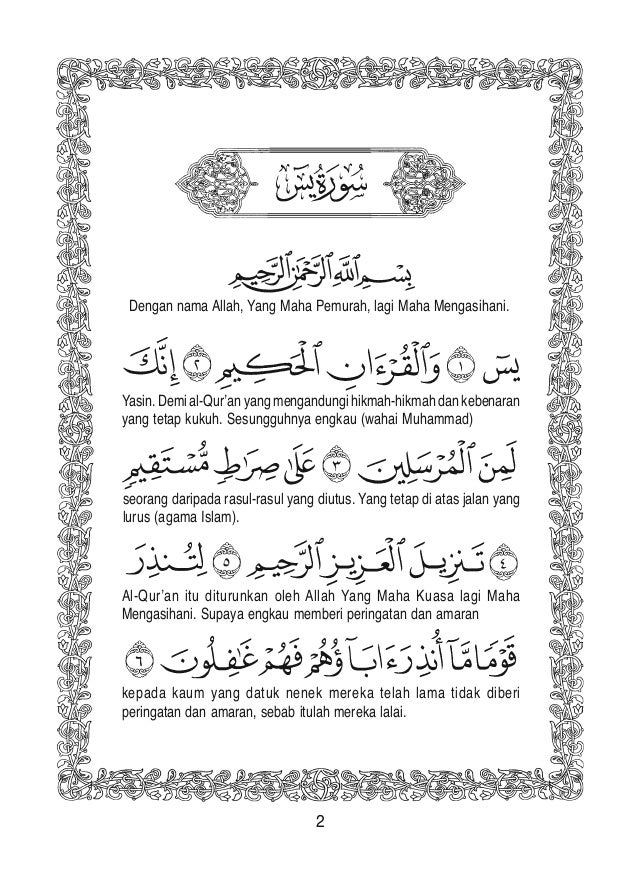 سُورَةُ يسٓ
بِسْمِ ٱللَّهِ ٱلرَّحْمَٰنِ ٱلرَّحِيمِ
Dengan nama Allah, Yang Maha Pemurah, lagi Maha Mengasihani.
يسٓ ١ وَٱلْقُرْءَانِ ٱلْحَكِيمِ ٢ إِنَّكَ
Yasin. Demi al-Qur’an yang mengandungi hikmah-hikmah dan kebenaran
yang tetap kukuh. Sesungguhnya engkau (wahai Muhammad)
لَمِنَ ٱلْمُرْسَلِينَ ٣ عَلَىٰ صِرَٰطٍ مُّسْتَقِيمٍ
seorang daripada rasul-rasul yang diutus. Yang tetap di atas jalan yang
lurus (agama Islam).
٤ تَنزِيلَ ٱلْعَزِيزِ ٱلرَّحِيمِ ٥ لِتُنذِرَ
Al-Qur’an itu diturunkan oleh Allah Yang Maha Kuasa lagi Maha
Mengasihani. Supaya engkau memberi peringatan dan amaran
قَوْمًا مَّآ أُنذِرَ ءَابَآؤُهُمْ فَهُمْ غَٰفِلُونَ ٦
kepada kaum yang datuk nenek mereka telah lama tidak diberi
peringatan dan amaran, sebab itulah mereka lalai.
2